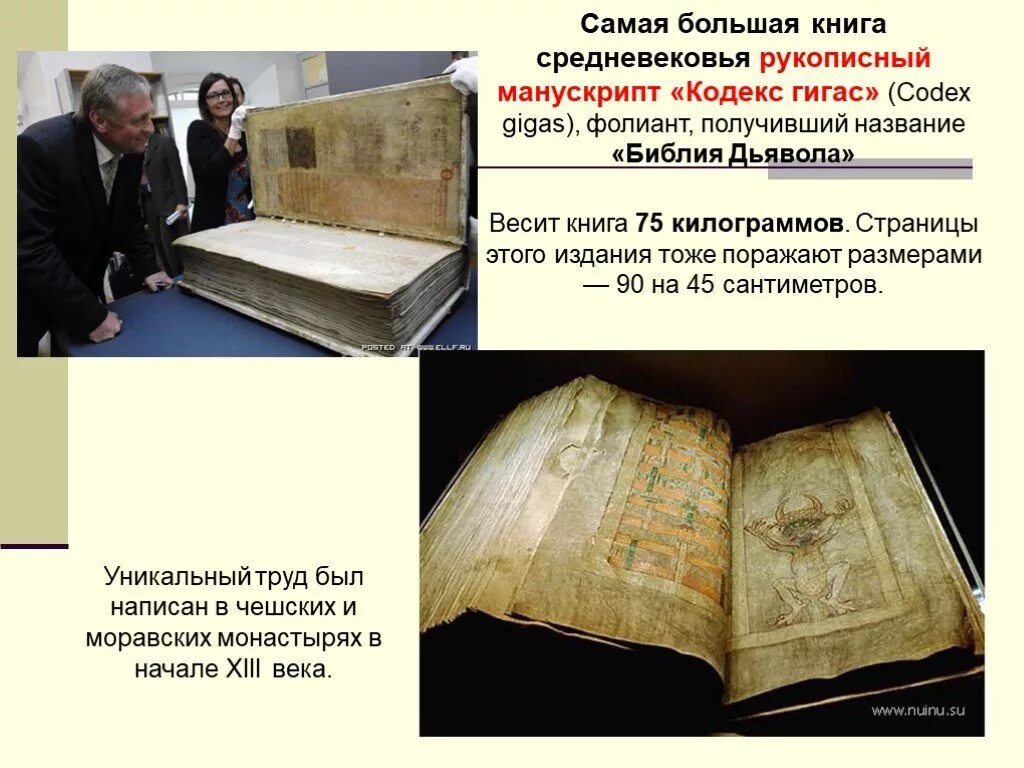 Самая большая книга
средневековья рукописный
манускрипт «Кодекс гигас» (Codex
gigas), фолиант, получивший название
«Библия Дьявола»
Весит книга 75 килограммов. Страницы
этого издания тоже поражают размерами
— 90 на 45 сантиметров.
POSTED AT WWW.ELLF.RU
Уникальный труд был
написан в чешских и
моравских монастырях в
начале XIII века.
www.nuinu.su